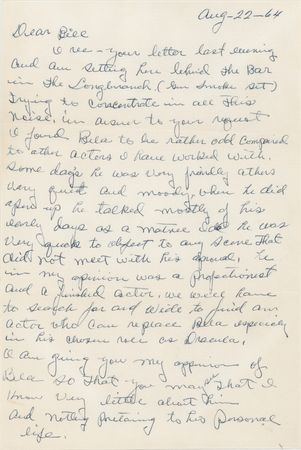 Aug-22-64
Dear Bill
I rec-your letter last evening
and am setting here behind the Bar
in The Longbranch (Gun Smoke set)
Trying to concentrate in all This
Noise, in answer to your request
I found Bela to be rather odd compared
to other actors I have worked with.
Some days he was very friendly others
very quiet and moody, when he did
open up he talked mostly of his
early days as a matinee Idol he was
very quick to object to any scene That
did not meet with his approval, he
in my opinion was a perfectionest
and a finished actor. we will have
to search far and wide to find an
actor who can replace Bela especially
in his chosen role as Dracula,
I am giving you my oppinion of
Bela so That you may That I
know very little about him
and nothing pretaining to his Personal
life.